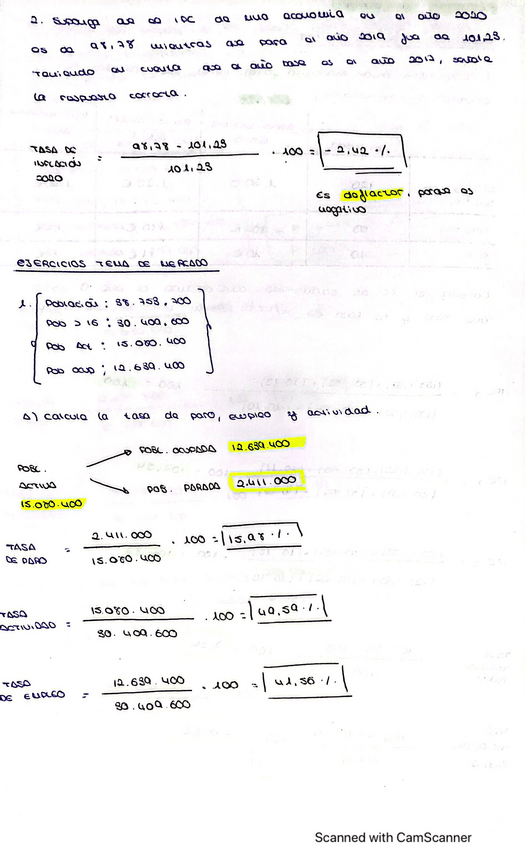 2. Suponga que el IPC de una economía en el año 2020
es de 98,78 mientras que para el año 2019 fue de 101,23.
Teniendo en cuenta que el año base es el año 2017, señale
la respuesta correcta.
TASA DE INFLACIÓN 2020 = 98,78 - 101,23 / 101,23 · 100 = -2,42 %
Es deflactor, porque es
negativo
EJERCICIOS TEMA DE MERCADO
1. Población: 38.758,700
Pob > 16: 30.409,600
Pob Act: 15.080.400
Pob ocup: 12.639.400
A) Calcula la tasa de paro, empleo y actividad.
POBL. OCUPADA 12.639.400
POBL. ACTIVA
POB. PARADA 2.411.000
15.080.400
TASA DE PARO = 2.411.000 / 15.080.400 · 100 = 15,98 %
TASA ACTIVIDAD = 15.080.400 / 30.409.600 · 100 = 49,59 %
TASA DE EMPLEO = 12.639.400 / 30.409.600 · 100 = 41,56 %
Scanned with CamScanner